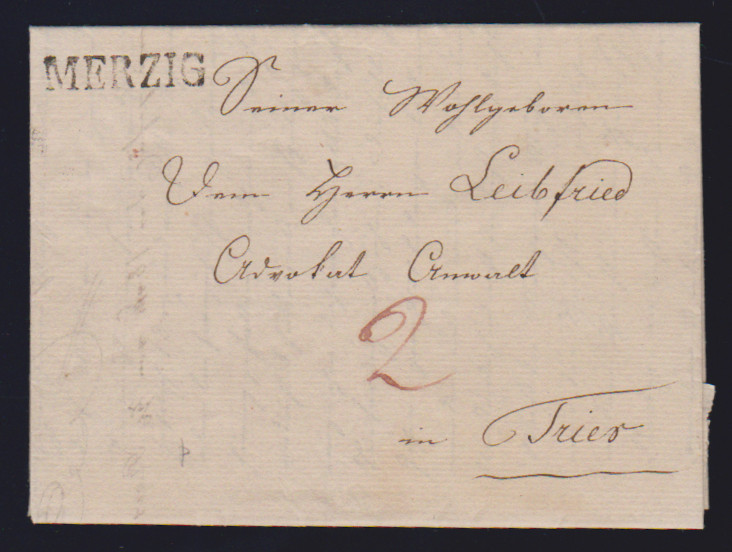 MERZIG
Seiner Wohlgeboren
Dem Herrn Leibfried
Advokat Anwalt
2
in Trier